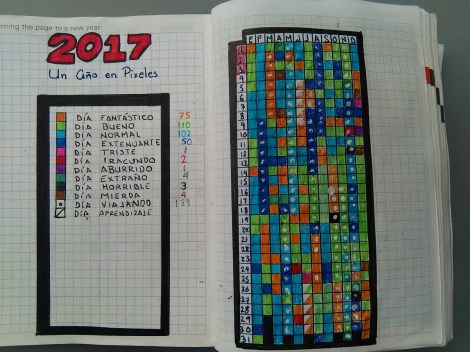 rning the page to a new year
2017
Un Año en Pixeles
DÍA FANTÁSTICO 75
DÍA BUENO 110
DÍA NORMAL 102
DÍA EXTENUANTE 50
DÍA TRISTE 1
DÍA IRACUNDO 2
DÍA ABURRIDO 1
DÍA EXTRAÑO 4
DÍA HORRIBLE 3
DÍA MIERDA 4
DÍA VIAJANDO 139
DÍA APRENDIZAJE
E F M A M J J A S O N D
1
2
3
4
5
6
7
8
9
10
11
12
13
14
15
16
17
18
19
20
21
22
23
24
25
26
27
28
29
30
31